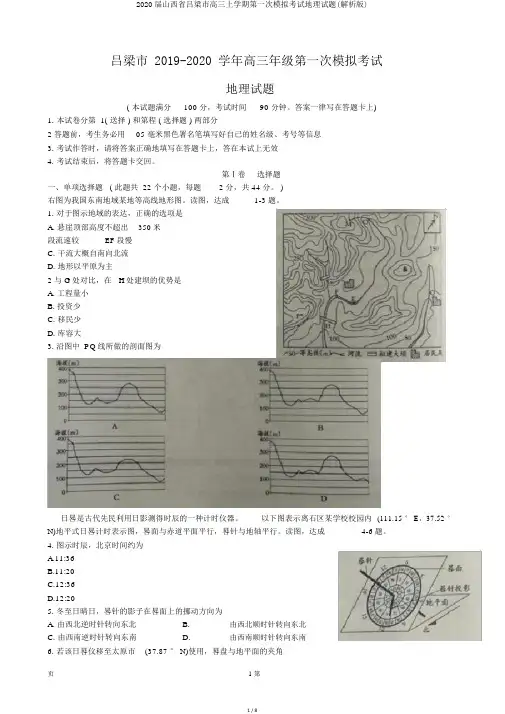 2020届山西省吕梁市高三上学期第一次模拟考试地理试题(解析版)
吕梁市 2019-2020 学年高三年级第一次模拟考试
地理试题
( 本试题满分 100 分，考试时间 90 分钟。答案一律写在答题卡上)
1. 本试卷分第 1( 选择 ) 和第程 ( 选择题 ) 两部分
2 答题前，考生务必用 05 毫米黑色署名笔填写好自已的姓名级、考号等信息
3. 考试作答时，请将答案正确地填写在答题卡上，答在本试上无效
4. 考试结束后，将答题卡交回。
第Ⅰ卷 选择题
一、单项选择题 ( 此题共 22 个小题，每题 2 分，共 44 分。 )
右图为我国东南地域某地等高线地形图。读图，达成 1-3 题。
1. 对于图示地域的表达，正确的选项是
A. 悬崖顶部高度不超出 350 米
段流速较 EF 段慢
C. 干流大概自南向北流
D. 地形以平原为主
2 与 G 处对比，在 H 处建坝的优势是
A. 工程量小
B. 投资少
C. 移民少
D. 库容大
3. 沿图中 PQ 线所做的剖面图为
50 等高线(m) 河流 拟建大坝 居民点
海拔(m) 400 300 200 100 0 A
海拔(m) 400 300 200 100 0 B
海拔(m) 400 300 200 100 0 C
海拔(m) 400 300 200 100 0 D
日晷是古代先民利用日影测得时辰的一种计时仪器。 以下图表示离石区某学校校园内 (111.15 ° E，37.52 °
N)地平式日晷计时表示图，晷面与赤道平面平行，晷针与地轴平行。读图，达成 4-6 题。
4. 图示时辰，北京时间约为
A.11:36
B.11:20
C.12:36
D.12:20
晷针
晷面
晷针投影
地平面
北
5. 冬至日晴日，晷针的影子在晷面上的挪动方向为
A. 由西北逆时针转向东北 B. 由西北顺时针转向东北
C. 由西南逆时针转向东南 D. 由西南顺时针转向东南
6. 若该日晷仪移至太原市 (37.87 ° N)使用，晷盘与地平面的夹角
页 1 第
1 / 8